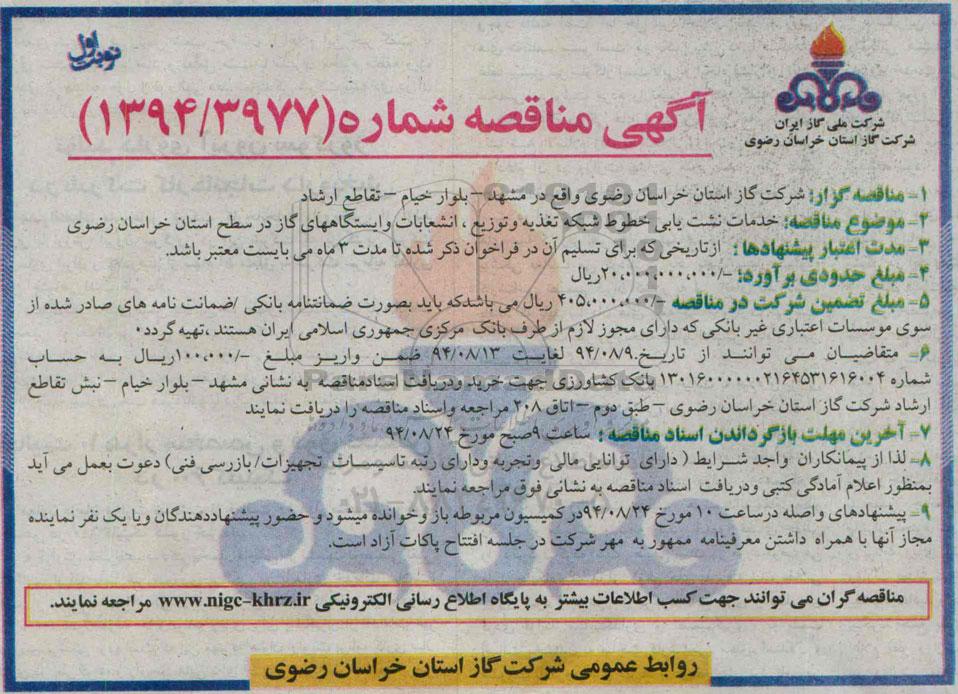 نوبت اول
شرکت ملی گاز ایران
شرکت گاز استان خراسان رضوی
آگهی مناقصه شماره(۱۳۹۴/۳۹۷۷)
۱- مناقصه گزار: شرکت گاز استان خراسان رضوی واقع در مشهد - بلوار خیام - تقاطع ارشاد
۲- موضوع مناقصه: خدمات نشت یابی خطوط شبکه تغذیه وتوزیع ، انشعابات وایستگاههای گاز در سطح استان خراسان رضوی
۳- مدت اعتبار پیشنهادها : ازتاریخی که برای تسلیم آن در فراخوان ذکر شده تا مدت ۳ ماه می بایست معتبر باشد.
۴- مبلغ حدودی برآورد: -/۲۰،۰۰۰،۰۰۰،۰۰۰ریال
۵- مبلغ تضمین شرکت در مناقصه -/۴۰۵،۰۰۰،۰۰۰ ریال می باشدکه باید بصورت ضمانتنامه بانکی /ضمانت نامه های صادر شده از
سوی موسسات اعتباری غیر بانکی که دارای مجوز لازم از طرف بانک مرکزی جمهوری اسلامی ایران هستند ،تهیه گردد۰
۶- متقاضیان می توانند از تاریخ.۹۴/۰۸/۹ لغایت ۹۴/۰۸/۱۳ ضمن واریز مبلغ -/۱۰۰،۰۰۰ریال به حساب
شماره بانک کشاورزی جهت خرید ودریافت اسنادمناقصه به نشانی مشهد - بلوار خیام - نبش تقاطع
ارشاد شرکت گاز استان خراسان رضوی - طبق دوم - اتاق ۲۰۸ مراجعه واسناد مناقصه را دریافت نمایند
۷- آخرین مهلت بازگرداندن اسناد مناقصه : ساعت ۹صبح مورخ ۹۴/۰۸/۲۴
۸- لذا از پیمانکاران واجد شرایط ( دارای توانایی مالی وتجربه ودارای رتبه تاسیسات تجهیزات/ بازرسی فنی) دعوت بعمل می آید
بمنظور اعلام آمادگی کتبی ودریافت اسناد مناقصه به نشانی فوق مراجعه نمایند
۹- پیشنهادهای واصله درساعت ۱۰ مورخ ۹۴/۰۸/۲۴در کمیسیون مربوطه باز وخوانده میشود و حضور پیشنهاددهندگان ویا یک نفر نماینده
مجاز آنها با همراه داشتن معرفینامه ممهور به مهر شرکت در جلسه افتتاح پاکات آزاد است.
مناقصه گران می توانند جهت کسب اطلاعات بیشتر به پایگاه اطلاع رسانی الکترونیکی www.nigc-khrz.ir مراجعه نمایند.
روابط عمومی شرکت گاز استان خراسان رضوی